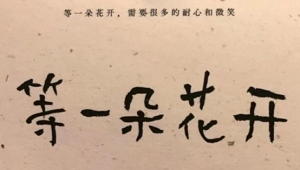 等一朵花开，需要很多的耐心和微笑
等一朵花开